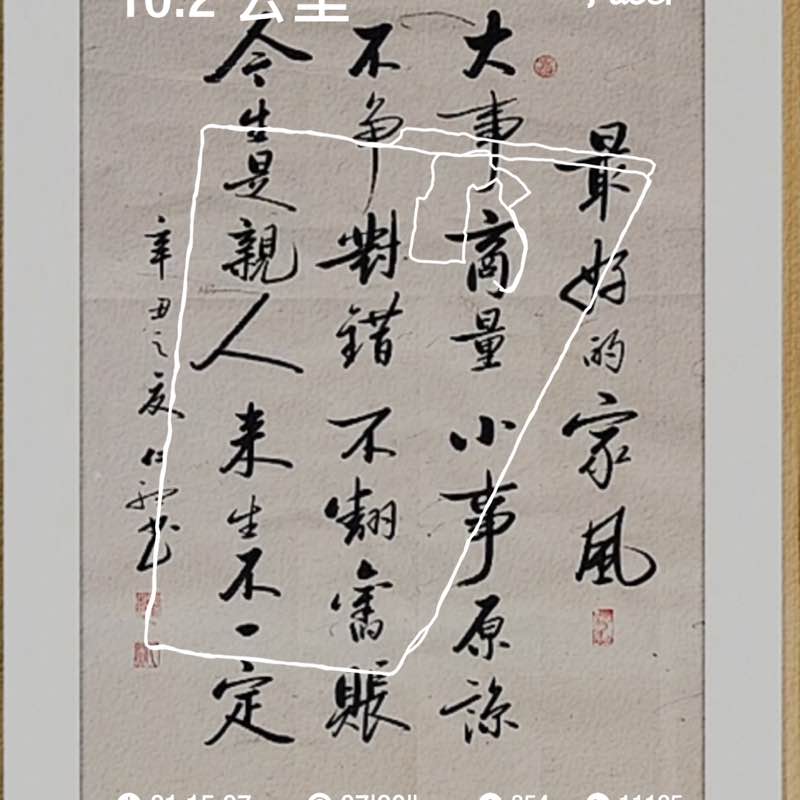 10.2 公里
最好的家風
大事商量小事原諒
不争對錯不翻舊賬
今生是親人来生不一定
辛丑之夏仁